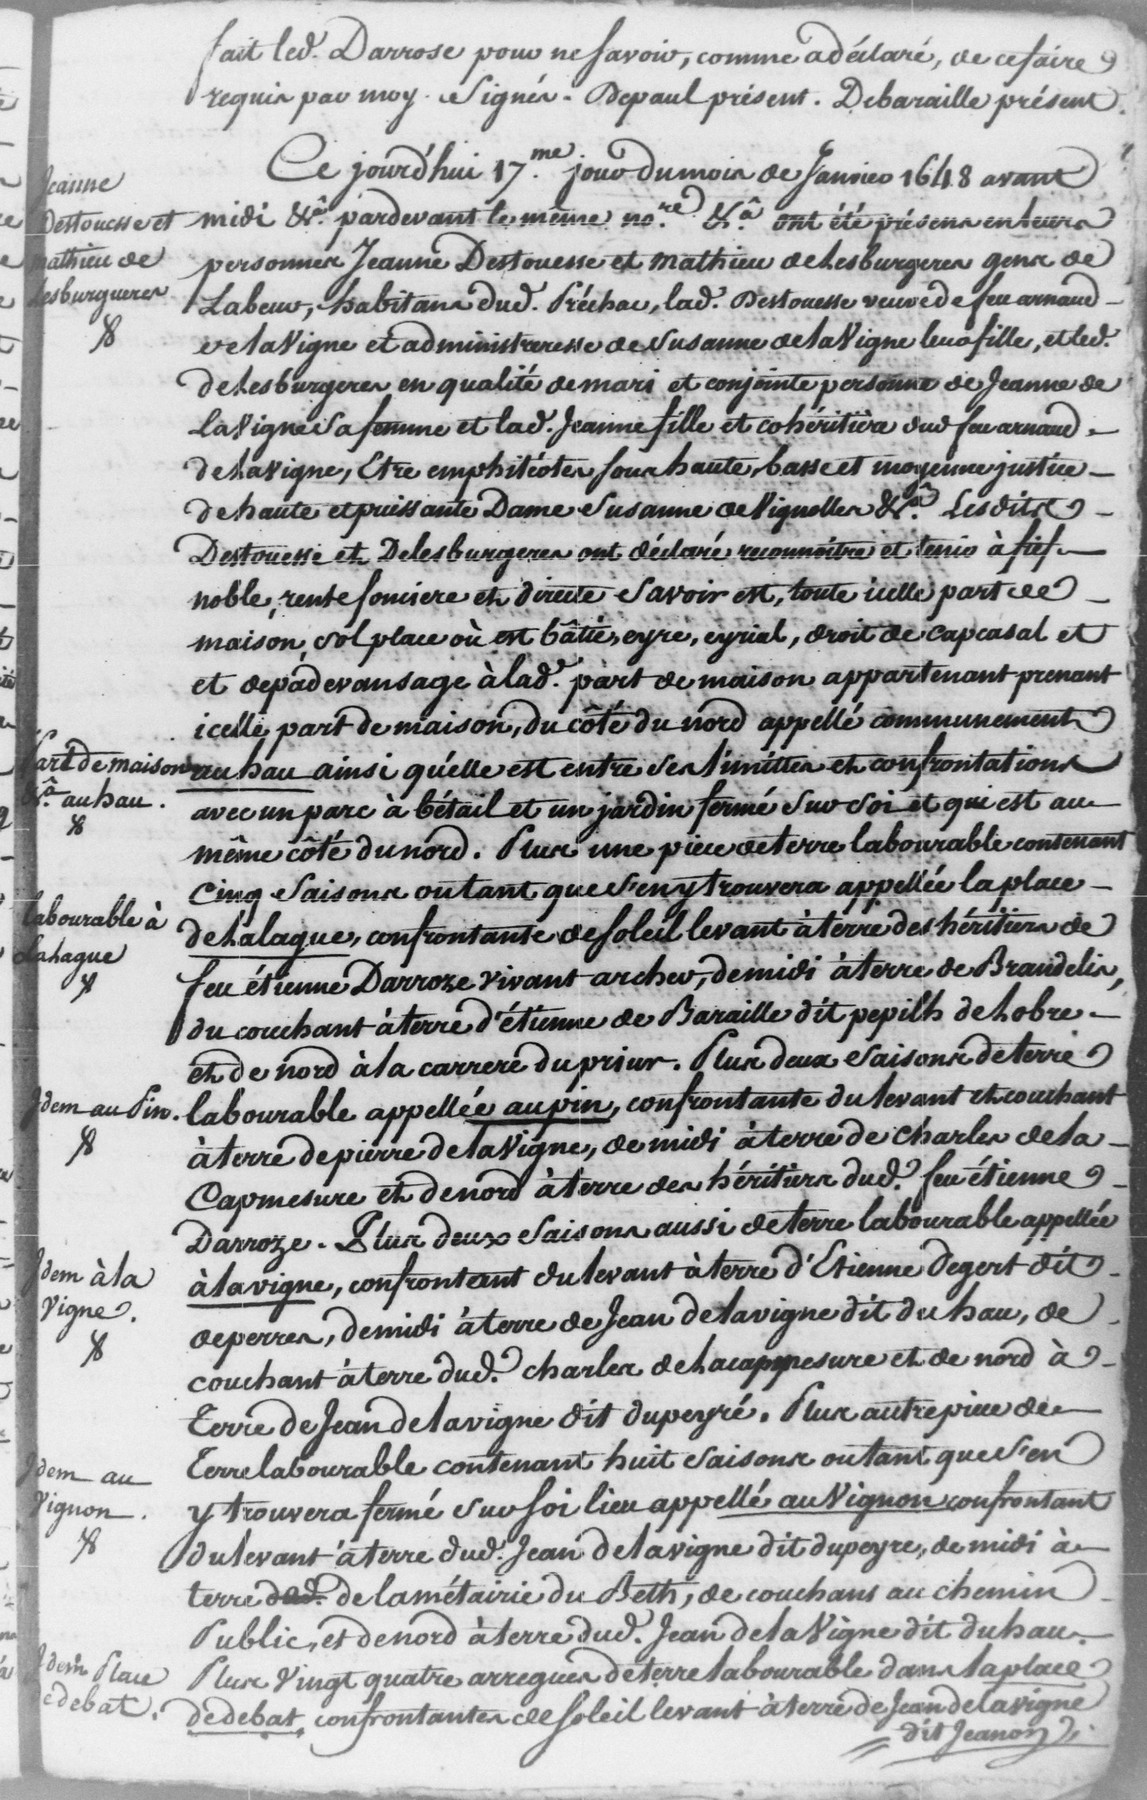 fait led. Darrose pour ne savoir, comme a déclaré, de ce faire
requis par moy. Signés. Depaul présent. Debaraille présent.
Ce jourd'hui 17.me jour du mois de Janvier 1648 avant
Jeanne
Destouesse et
mathieu de
Lesburgueres
midi &a. pardevant le même no.re &a. ont été présens en leurs
personnes Jeanne Destouesse et Mathieu de Lesburgeres gens de
Labeur, habitans dud. Préchac, lad. Destouesse veuve de feu arnaud
de laVigne et administreresse de Susanne de laVigne leur fille, et led.
de Lesburgeres en qualité de mari et conjointe personne de Jeanne de
LaVigne Sa femme et lad. Jeanne fille et cohéritière dud feu arnaud
de laVigne, Etre emphitéotes sous haute, basse et moyenne justice
de haute et puissante Dame Susanne de Vignolles &a. Lesdits
Destouesse et Delesburgeres ont déclaré reconnoitre et tenir à fief
noble, rente fonciere et directe Savoir est, toute icelle part de
maison, sol place où est bâtie, eyre, eyrial, droit de capcasal et
et depadevansage à lad. part de maison appartenant prenant
icelle part de maison, du côté du nord appellé communement
Part de maison
&a. au hau.
au hau ainsi qu'elle est entre ses limittes et confrontations
avec un parc à bétail et un jardin fermé Sur Soi et qui est au
même côté du nord. Plus une piece de terre labourable contenant
Cinq Saisons ou tant que S'en y trouvera appellée la place
labourable à
Lahague
de Lalague, confrontante de soleil levant à terre des héritiers de
feu étienne Darroze vivant archer, de midi à terre de Brandelis,
du couchant à terre d'étienne de Baraille dit pepilh de Lobre
et de nord à la carrere du priur. Plus deux Saisons de terre
Idem au Pin.
labourable appellée au pin, confrontante du levant et couchant
à terre de pierre de laVigne, de midi à terre de charles de la
Capmesure et de nord à terre des héritiers dud. feu étienne
Darroze. Plus deux Saisons aussi de terre labourable appellée
Idem à la
Vigne.
à la vigne, confronteant du levant à terre d'Etienne Degert dit
deperres, de midi à terre de Jean de lavigne dit du hau, de
couchant à terre dud. charles de Lacapmesure et de nord à
Terre de Jean de lavigne dit dupeyré. Plus autre piece de
Terre labourable contenant huit Saisons ou tant que S'en
Idem au
Vignon.
y trouvera fermé Sur Soi lieu appellé au Vignon confrontant
du levant à terre dud. Jean de lavigne dit dupeyre, de midi à
terre de la métairie du Beth, de couchans au chemin
Public, et de nord à terre dud. Jean de laVigne dit du hau.
Idem Place
dedebat.
Plus Vingt quatre arregues de terre labourable dans la place
dedebat, confrontantes de Soleil levant à terre de Jean de lavigne
dit Jeanon